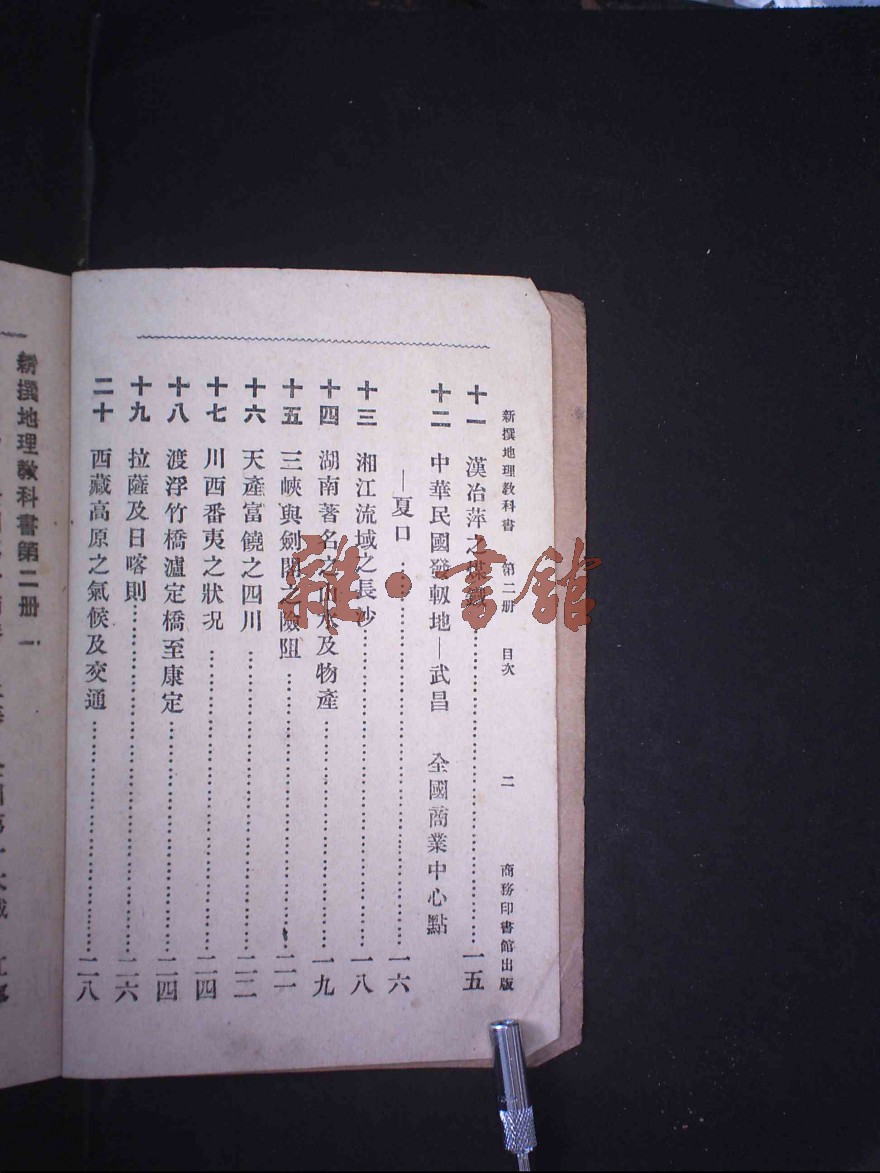 新撰地理教科書 第二册 目次 二 商務印書館出版
十一 漢冶萍之煤鐵……一五
十二 中華民國發軔地—武昌 全國商業中心點
—夏口……一六
十三 湘江流域之長沙……一八
十四 湖南著名之山水及物產……一九
十五 三峽與劍閣之險阻……二一
十六 天產富饒之四川……二二
十七 川西番夷之狀况……二四
十八 渡浮竹橋瀘定橋至康定……二四
十九 拉薩及日喀則……二六
二十 西藏高原之氣候及交通……二八
新撰地理教科書第二册 一
雜·書館